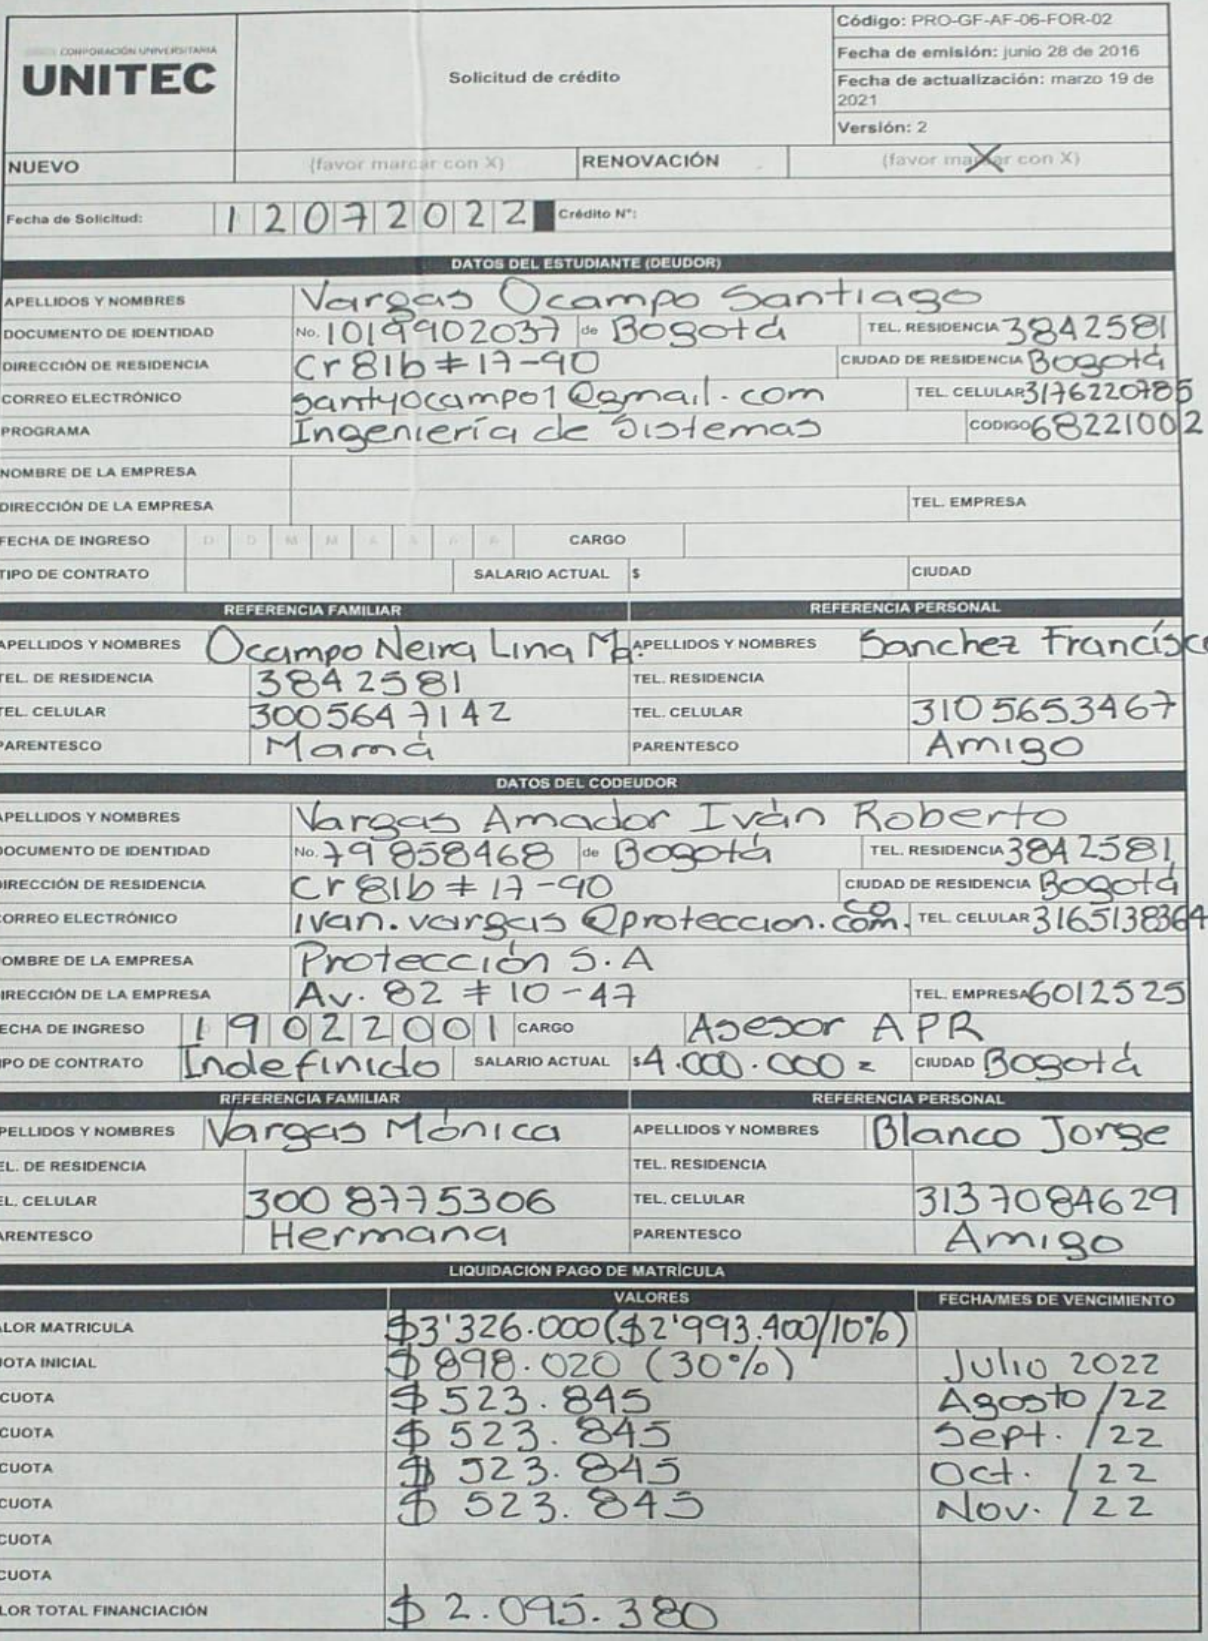 CORPORACIÓN UNIVERSITARIA
UNITEC
Solicitud de crédito
Código: PRO-GF-AF-06-FOR-02
Fecha de emisión: junio 28 de 2016
Fecha de actualización: marzo 19 de
2021
Versión: 2
NUEVO (favor marcar con X) RENOVACIÓN (favor marcar con X)
Fecha de Solicitud: 12072022 Crédito N°:
DATOS DEL ESTUDIANTE (DEUDOR)
APELLIDOS Y NOMBRES Vargas Ocampo Santiago
DOCUMENTO DE IDENTIDAD No. 1019902037 de Bogotá TEL. RESIDENCIA 3842581
DIRECCIÓN DE RESIDENCIA Cr 81b # 17-90 CIUDAD DE RESIDENCIA Bogotá
CORREO ELECTRÓNICO santyocampo1@gmail.com TEL. CELULAR 3176220785
PROGRAMA Ingeniería de Sistemas CODIGO 68221002
NOMBRE DE LA EMPRESA
DIRECCIÓN DE LA EMPRESA TEL. EMPRESA
FECHA DE INGRESO D D M M A A A A CARGO
TIPO DE CONTRATO SALARIO ACTUAL $ CIUDAD
REFERENCIA FAMILIAR REFERENCIA PERSONAL
APELLIDOS Y NOMBRES Ocampo Neira Lina Ma. APELLIDOS Y NOMBRES Sanchez Francisco
TEL. DE RESIDENCIA 3842581 TEL. RESIDENCIA
TEL. CELULAR 3005647142 TEL. CELULAR 3105653467
PARENTESCO Mamá PARENTESCO Amigo
DATOS DEL CODEUDOR
APELLIDOS Y NOMBRES Vargas Amador Iván Roberto
DOCUMENTO DE IDENTIDAD No. 79858468 de Bogotá TEL. RESIDENCIA 3842581
DIRECCIÓN DE RESIDENCIA Cr 81b # 17-90 CIUDAD DE RESIDENCIA Bogotá
CORREO ELECTRÓNICO ivan.vargas@proteccion.com.co TEL. CELULAR 3165138364
NOMBRE DE LA EMPRESA Protección S.A
DIRECCIÓN DE LA EMPRESA Av. 82 # 10-47 TEL. EMPRESA 6012525
FECHA DE INGRESO 19022001 CARGO Asesor APR
TIPO DE CONTRATO Indefinido SALARIO ACTUAL $4.000.000= CIUDAD Bogotá
REFERENCIA FAMILIAR REFERENCIA PERSONAL
APELLIDOS Y NOMBRES Vargas Mónica APELLIDOS Y NOMBRES Blanco Jorge
TEL. DE RESIDENCIA TEL. RESIDENCIA
TEL. CELULAR 3008775306 TEL. CELULAR 3137084629
PARENTESCO Hermana PARENTESCO Amigo
LIQUIDACIÓN PAGO DE MATRÍCULA
VALORES FECHA/MES DE VENCIMIENTO
VALOR MATRICULA $3'326.000 ($2'993.400/10%)
CUOTA INICIAL $898.020 (30%) Julio 2022
CUOTA $523.845 Agosto /22
CUOTA $523.845 Sept. /22
CUOTA $523.845 Oct. /22
CUOTA $523.845 Nov. /22
CUOTA
CUOTA
VALOR TOTAL FINANCIACIÓN $2.095.380